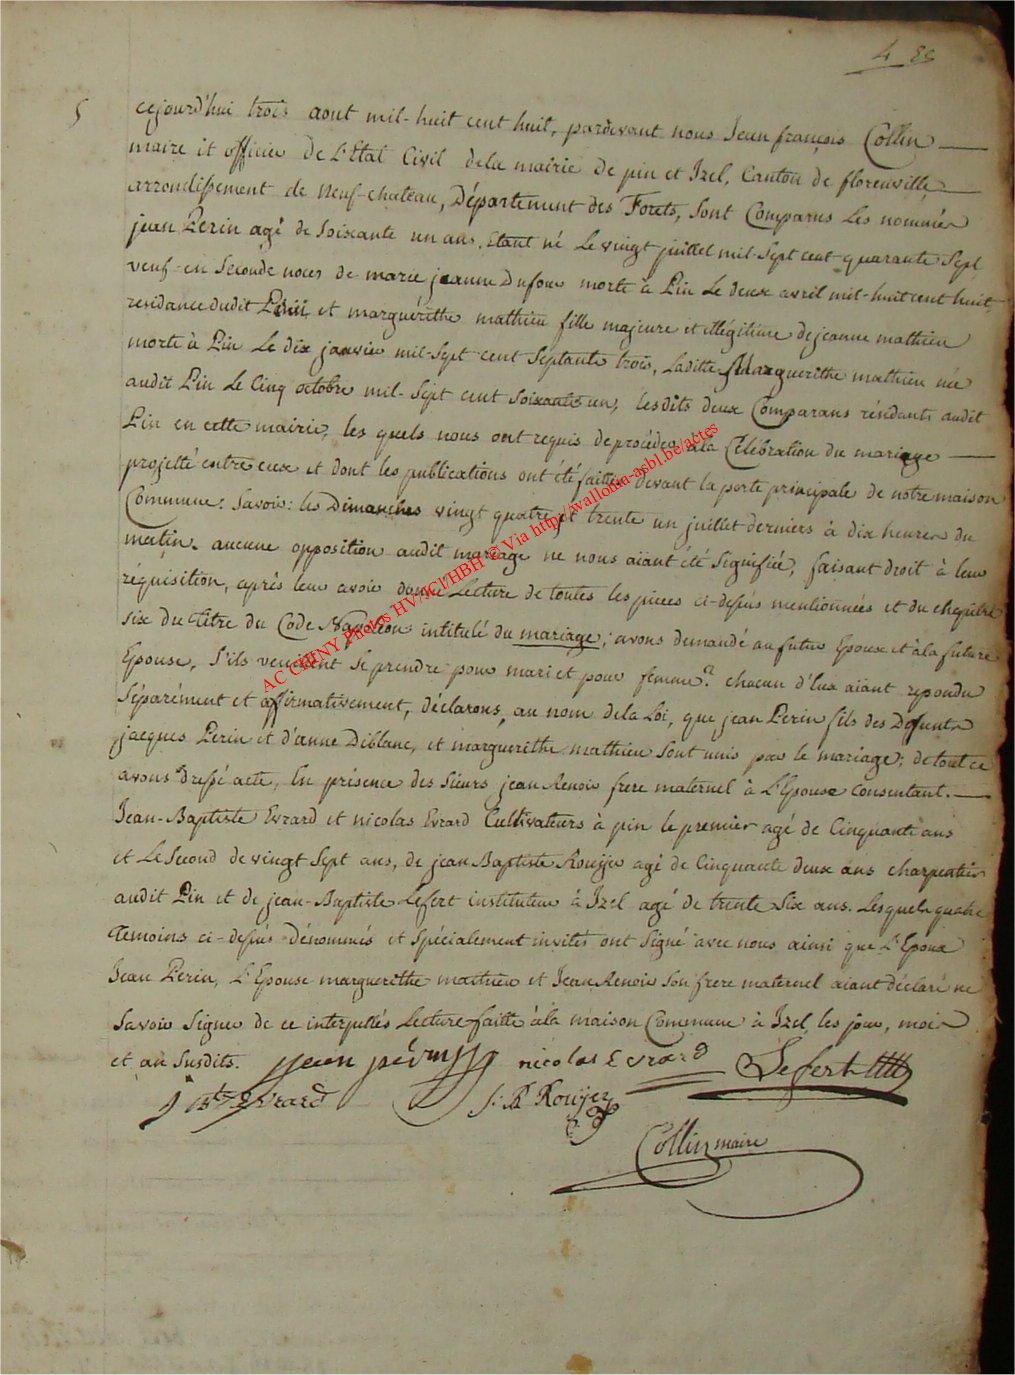 4 ec
5
cejourd'hui trois aout mil-huit cent huit, pardevant nous Jean françois Collin
maire it officier de L'Etat Civil dela mairie de pin et Izel, Canton de florenville
arrondissement de Neuf-chateau, Département des Forets, sont Comparus les nommés
jean Perin agé de soixante un ans, étant né le vingt juillet mil-sept cent quarante sept
veuf en seconde noces de marie jeanne Dufour morte à Pin le deux avril mil-huit cent huit,
residance dudit Pin, et marguérithe mathieu fille majeure et illégitime de jeanne mathieu
morte à Pin le dix janvier mil-sept cent septante trois, laditte Marguerithe mathieu née
audit Pin le Cinq octobre mil-sept cent soixante un, lesdits deux Comparans résidants audit
Pin en cette mairie, les quels nous ont requis de procéder à la Célébration du mariage
projetté entre eux et dont les publications ont été faittes devant la porte principale de notre maison
Commune: Savoir: les Dimanches vingt quatre et trente un juillet derniers à dix heures du
matin. aucune opposition audit mariage ne nous aïant été signifiée, faisant droit à leur
réquisition, après leur avoir donné Lecture de toutes les pieces ci-dessus mentionnées et du chapitre
six du titre du Code Napoléon intitulé du mariage; avons demandé au futur Epoux et à la future
Epouse, s'ils veuillent se prendre pour mari et pour femme? chacun d'eux aïant repondu
séparément et affirmativement, déclarons, au nom dela Loi, que jean Perin fils des Defunts
jacques Perin et d'anne Diblanc, et marguerithe mathieu sont unis par le mariage; de tout ce
avons dressé acte, En présence des sieurs jean Renoir frere maternel à L'Epouse Consentant.
Jean-Baptiste Evrard et nicolas Evrard Cultivateurs à pin le premier agé de Cinquante ans
et Le second de vingt sept ans, de jean Baptiste Rouyer agé de Cinquante deux ans charpentier
audit Pin et de jean-Baptiste Lefert instituteur à Izel agé de trente six ans. Lesquels quatre
Temoins ci-dessus dénommés et spécialement invités ont signé avec nous ainsi que L'Epoux
Jean Perin, L'Epouse marguerithe mathieu et Jean Renoir son frere maternel aïant déclaré ne
savoir signer de ce interpellés Lecture faitte à la maison Commune à Izel les jour, mois
et an susdits. jean périn nicolas Evrard Lefert
j Bte Evrard J. B Rouyer
Collin maire
AC CHINY Photos HV/ICI/HBH © Via http://wallonia-asbl.be/actes